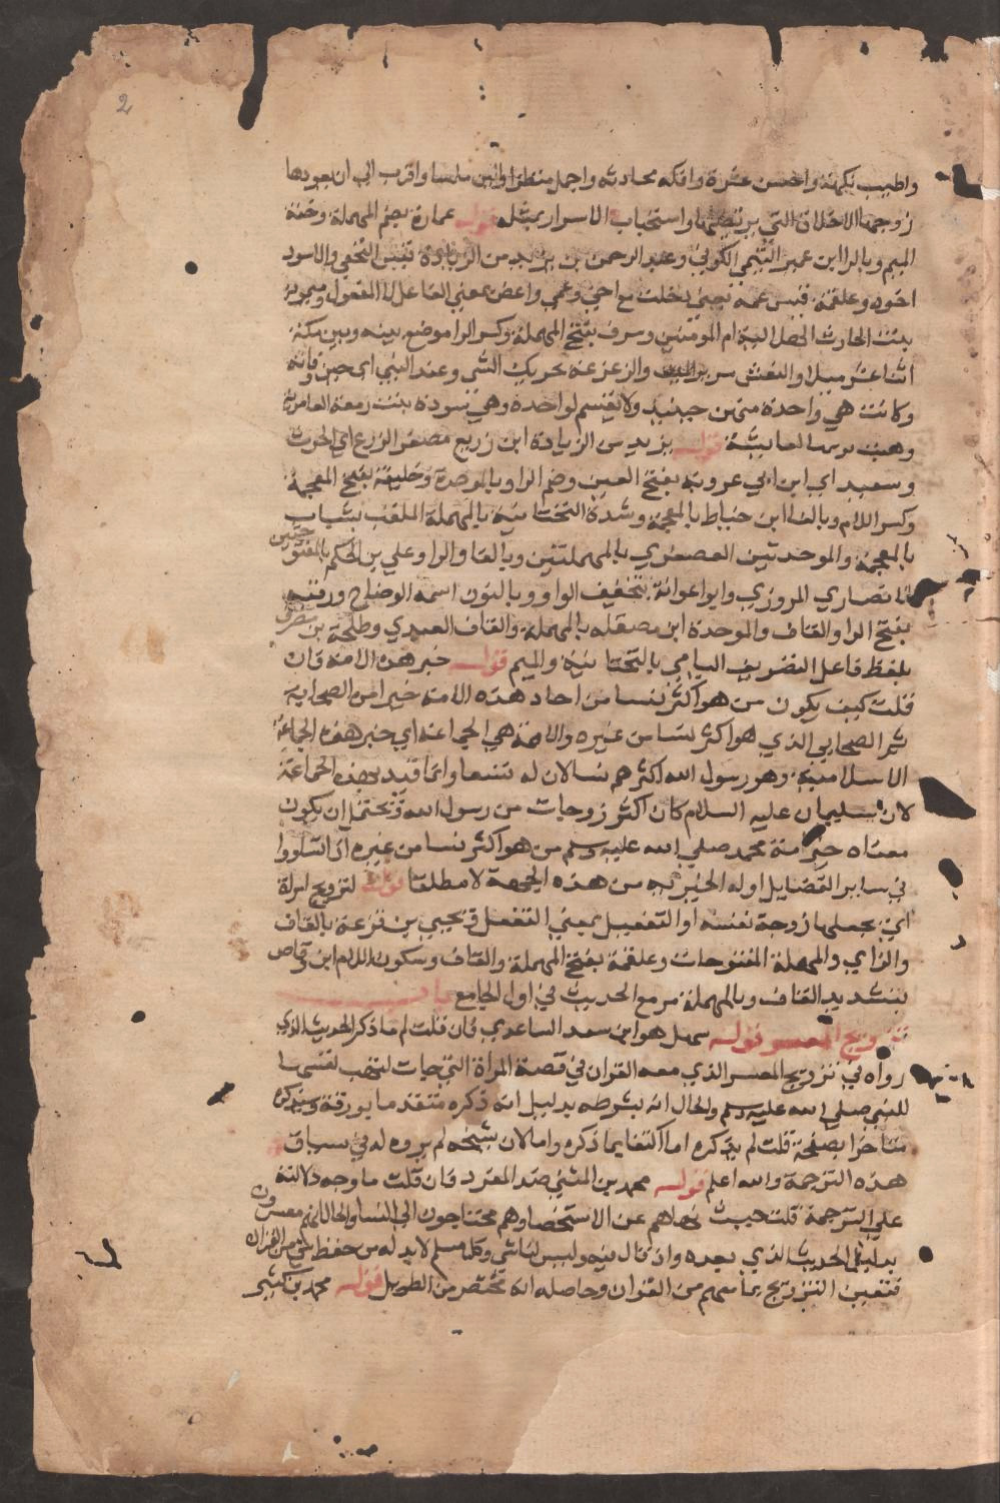 2
واطيب نكهة واحسن عشرة وافكه محادثة واجمل منظرا والين ملمسا واقرب الي ان يعودها
زوجها الاخلاق التي يرتضيها واستحباب الاسرار بمثله قوله عمارة بضم المهملة وخفة
الميم وبالرا ابن عمير التيمي الكوفي وعبد الرحمن بن يزيد من الزيادة بن قيس النخعي والاسود
اخوه وعلقمة بن قيس عمه يعني دخلت مع اخي وعمي واغض بمعني الفاعل او المفعول وميمونة
بنت الحارث الهلالية ام المومنين وسرف بفتح المهملة وكسر الرا موضع بينه وبين مكة
اثنا عشر ميلا والنعش سرير الميت والزعزعة تحريك الشي وعند النبي اي حين وفاته
وكانت هي واحدة منهن حينيذ ولا يقسم لواحدة وهي سودة بنت زمعة العامرية
وهبت يومها لعايشة قوله يزيد من الزيادة ابن زريع مصغر الزرع اي الحرث
وسعيد اي ابن ابي عروبة بفتح العين وضم الرا وبالموحدة وخليفة بفتح المعجمة
وكسر اللام وبالفا ابن خياط بالمعجمة وشدة التحتانية بالمهملة الملقب بشباب
بالمعجمة والموحدتين العصفري بالمهملتين وبالفا والرا وعلي بن الحكم بالمفتوحتين
الانصاري المروزي وابو عوانة بتخفيف الواو وبالنون اسمه الوضاح ورقبة
بفتح الرا والقاف والموحدة ابن مصقلة بالمهملة والقاف العبدي وطلحة بن مصرف
بلفظ فاعل التصريف اليامي بالتحتانية والميم قوله خير هذه الامة فان
قلت كيف يكون من هو اكثر نسا من احاد هذه الامة خيرا من الصحابة
الصحابي الذي هو اكثر نسا من غيره والامة هي الجماعة اي خير هذه الجماعة
الاسلامية وهو رسول الله اكثرهم نسا لان له تسعا وانما قيد بهذه الجماعة
لان سليمان عليه السلام كان اكثر زوجات من رسول الله ويحتمل ان يكون
معناه خير امة محمد صلي الله عليه وسلم من هو اكثر نسا من غيره اذا تساووا
في ساير الفضايل او له الخيرية من هذه الجهة لا مطلقا قوله لتزويج امراة
اي يجعلها زوجة نفسه او التفعيل بمعني التفعل ويحيي بن قزعة بالقاف
والزاي والمهملة المفتوحات وعلقمة بفتح المهملة والقاف وسكون اللام ابن وقاص
بتشديد القاف وبالمهملة مر مع الحديث في اول الجامع باب
تزويج المعسر قوله سهل هو ابن سعد الساعدي فان قلت لم ما ذكر الحديث الذي
رواه في تزويج المعسر الذي معه القران في قصة المراة التي جات لتهب نفسها
للنبي صلي الله عليه وسلم والحال انه بشرطه بدليل انه ذكره متقدما بورقة وسيذكره
متاخرا بصفحة قلت لم يذكره اما اكتفا بما ذكره واما لان شيخه لم يروه له في سياق
هذه الترجمة والله اعلم قوله محمد بن المثني ضد المفرد فان قلت ما وجه دلالته
علي الترجمة قلت حيث نهاهم عن الاستخصا وهم محتاجون الي النسا والحال انهم معسرون
بدليل الحديث الذي بعده واذ قال فيه وليس لنا شي وكل مسلم لابد له من حفظ شي من القران
فتعين التزويج بما معهم من القران وحاصله انه مختصر من الطويل قوله محمد بن كثير